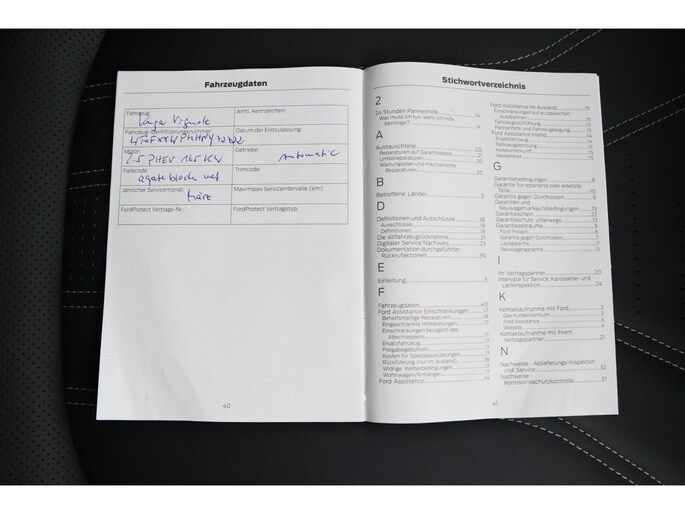 Fahrzeugdaten
Fahrzeug: Amtl. Kennzeichen:
Kuga Vignale
Fahrzeug-Identifizierungsnummer: Datum der Erstzulassung:
Motor: Getriebe:
2.5 PHEV 165 KW Automatic
Farbcode: Trimcode:
agate black met
Jährlicher Servicemonat: Maximales Serviceintervalle (km):
März
FordProtect Vertrags-Nr.: FordProtect Vertragstyp:
40
Stichwortverzeichnis
2
24 Stunden Pannenhilfe 14
Was muss ich tun, wenn ich Hilfe
benötige? 14
A
Austauschteile 21
Reparaturen auf Garantiebasis 20
Unfallreparaturen 21
Wartungsteilen und mechanische
Reparaturen 21
B
Betroffene Länder 3
D
Definitionen und Ausschlüsse 18
Ausschlüsse 19
Definitionen 18
Die Altfahrzeugrücknahme 21
Digitaler Service Nachweis 23
Dokumentation durchgeführter
Rückrufaktionen 39
E
Einleitung 3
F
Fahrzeugdaten 40
Ford Assistance Einschränkungen 17
Behelfsmäßige Reparaturen 18
Eingeschränkte Hilfeleistungen 17
Einschränkungen bezüglich des
Abschleppens 17
Ersatzfahrzeug 17
Freigabegebühren 17
Kosten für Spezialausrüstungen 17
Rückführung (nur im Ausland) 18
Widrige Wetterbedingungen 17
Wohnwagen/Anhänger 17
Ford Assistance 14
Ford Assistance im Ausland 15
Einschränkungen auf europäischen
Autobahnen 15
Fahrzeugrückführung 15
Pannenhilfe und Fahrzeugbergung 15
Ford Assistance Inland 15
Ersatzfahrzeug 15
Fahrzeugabholung 15
Hotelunterkunft 15
Weiterreise 15
G
Garantiebedingungen 8
Garantie für reparierte oder ersetzte
Teile 10
Garantie gegen Durchrosten 9
Garantien und
Neuwagenverkaufsbedingungen 13
Garantieschein 22
Garantieschutz unterwegs 13
Garantiezeiträume 5
Ford Protect 6
Garantie gegen Durchrosten 7
Lackgarantie 7
Neuwagengarantie 5
I
Ihr Vertragspartner 20
Intervalle für Service, Karosserie- und
Lackinspektion 24
K
Kontaktaufnahme mit Ford 3
Das Kundenzentrum 3
Ford Assistance 3
Website 4
Kontaktaufnahme mit Ihrem
Vertragspartner 21
N
Nachweise - Ablieferungs-Inspektion
und Service 32
Nachweise -
Korrosionsschutzkontrolle 37
41